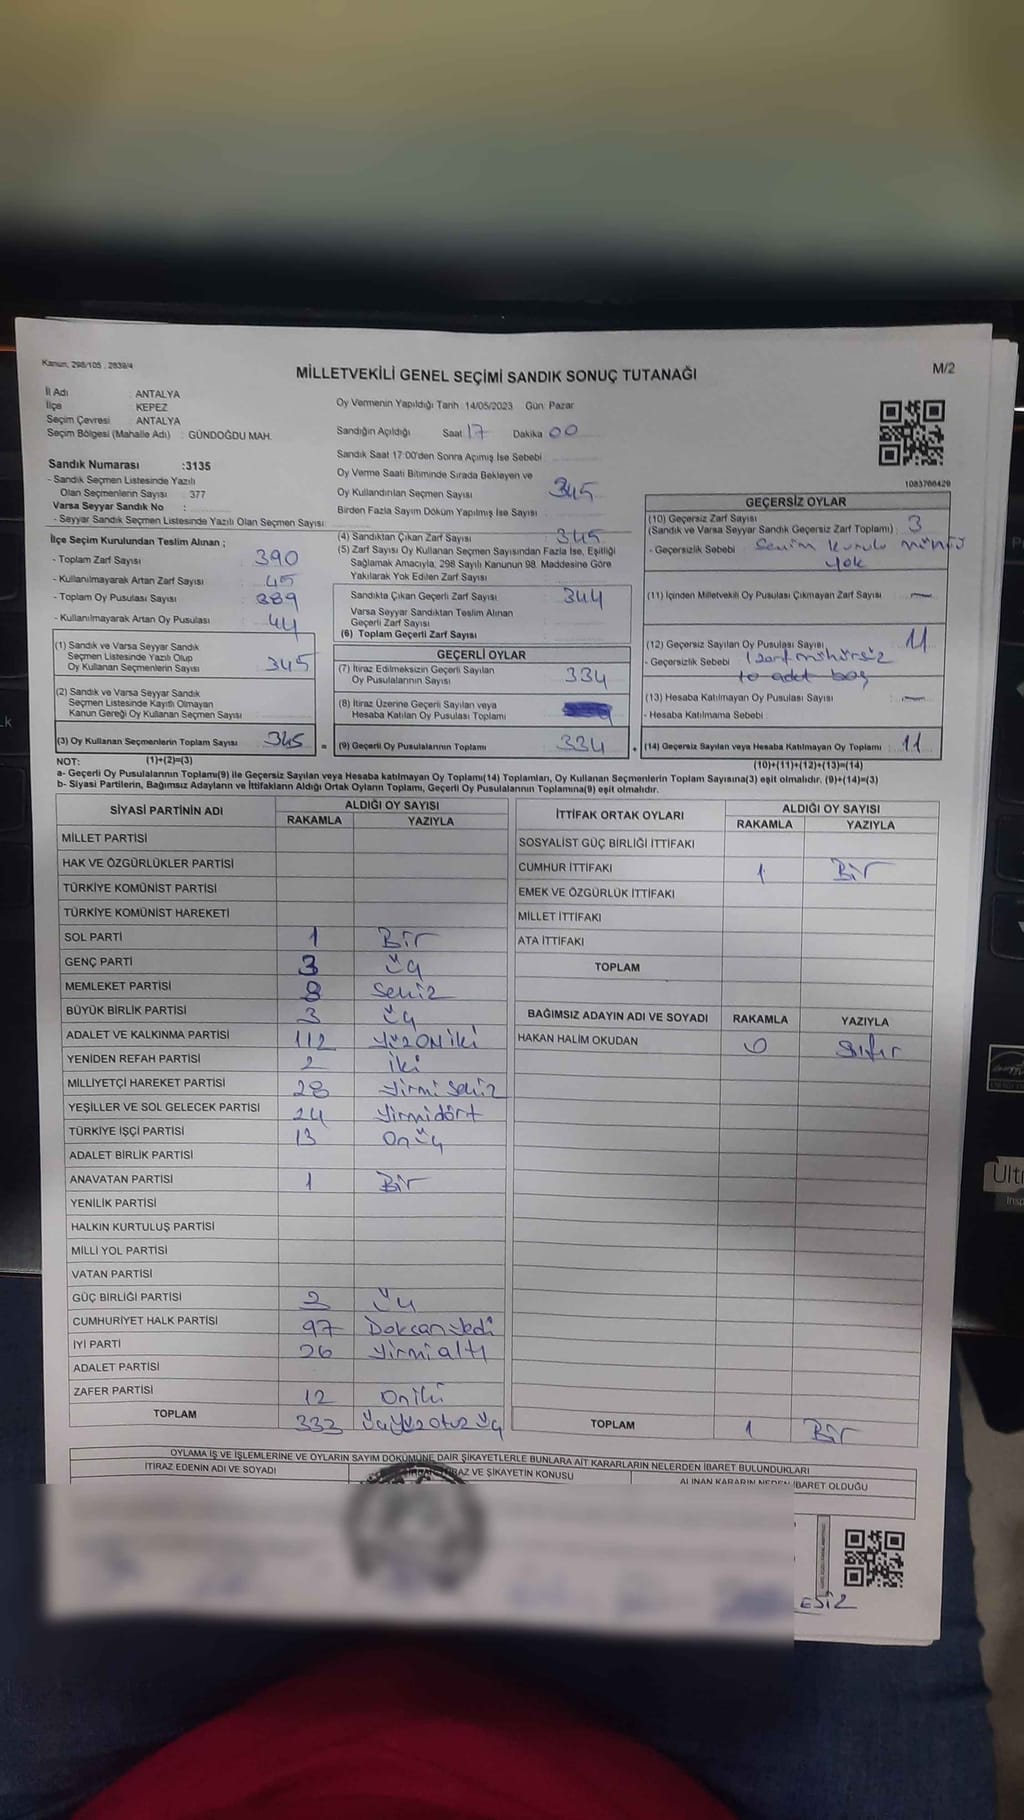 Kanun, 298/105 , 2839/4
MİLLETVEKİLİ GENEL SEÇİMİ SANDIK SONUÇ TUTANAĞI
M/2
İl Adı : ANTALYA
İlçe : KEPEZ
Seçim Çevresi : ANTALYA
Seçim Bölgesi (Mahalle Adı) : GÜNDOĞDU MAH.
Sandık Numarası :3135
- Sandık Seçmen Listesinde Yazılı
Olan Seçmenlerin Sayısı : 377
Varsa Seyyar Sandık No :
- Seyyar Sandık Seçmen Listesinde Yazılı Olan Seçmen Sayısı
İlçe Seçim Kurulundan Teslim Alınan ;
- Toplam Zarf Sayısı : 390
- Kullanılmayarak Artan Zarf Sayısı : 45
- Toplam Oy Pusulası Sayısı : 389
- Kullanılmayarak Artan Oy Pusulası : 44
(1) Sandık ve Varsa Seyyar Sandık
Seçmen Listesinde Yazılı Olup
Oy Kullanan Seçmenlerin Sayısı : 345
(2) Sandık ve Varsa Seyyar Sandık
Seçmen Listesinde Kayıtlı Olmayan
Kanun Gereği Oy Kullanan Seçmen Sayısı
(3) Oy Kullanan Seçmenlerin Toplam Sayısı : 345 =
Oy Vermenin Yapıldığı Tarih :14/05/2023 Gün: Pazar
Sandığın Açıldığı Saat 17 Dakika 00
Sandık Saat 17:00'den Sonra Açımış İse Sebebi
Oy Verme Saati Bitiminde Sırada Bekleyen ve
Oy Kullandırılan Seçmen Sayısı 345
Birden Fazla Sayım Döküm Yapılmış İse Sayısı
(4) Sandıktan Çıkan Zarf Sayısı : 345
(5) Zarf Sayısı Oy Kullanan Seçmen Sayısından Fazla İse, Eşitliği
Sağlamak Amacıyla, 298 Sayılı Kanunun 98. Maddesine Göre
Yakılarak Yok Edilen Zarf Sayısı
Sandıkta Çıkan Geçerli Zarf Sayısı : 344
Varsa Seyyar Sandıktan Teslim Alınan
Geçerli Zarf Sayısı
(6) Toplam Geçerli Zarf Sayısı
GEÇERLİ OYLAR
(7) İtiraz Edilmeksizin Geçerli Sayılan
Oy Pusulalarının Sayısı : 334
(8) İtiraz Üzerine Geçerli Sayılan veya
Hesaba Katılan Oy Pusulası Toplamı
(9) Geçerli Oy Pusulalarının Toplamı : 334 +
1083766429
GEÇERSİZ OYLAR
(10) Geçersiz Zarf Sayısı
(Sandık ve Varsa Seyyar Sandık Geçersiz Zarf Toplamı) : 3
- Geçersizlik Sebebi
yok
(11) İçinden Milletvekili Oy Pusulası Çıkmayan Zarf Sayısı : —
(12) Geçersiz Sayılan Oy Pusulası Sayısı : 11
- Geçersizlik Sebebi 1 zarf mühürsüz
10 adet boş
(13) Hesaba Katılmayan Oy Pusulası Sayısı : —
- Hesaba Katılmama Sebebi
(14) Geçersiz Sayılan veya Hesaba Katılmayan Oy Toplamı : 11
NOT: (1)+(2)=(3) (10)+(11)+(12)+(13)=(14)
a- Geçerli Oy Pusulalarının Toplamı(9) ile Geçersiz Sayılan veya Hesaba katılmayan Oy Toplamı(14) Toplamları, Oy Kullanan Seçmenlerin Toplam Sayısına(3) eşit olmalıdır. (9)+(14)=(3)
b- Siyasi Partilerin, Bağımsız Adayların ve İttifakların Aldığı Ortak Oyların Toplamı, Geçerli Oy Pusulalarının Toplamına(9) eşit olmalıdır.
SİYASİ PARTİNİN ADI ALDIĞI OY SAYISI
RAKAMLA YAZIYLA
MİLLET PARTİSİ
HAK VE ÖZGÜRLÜKLER PARTİSİ
TÜRKİYE KOMÜNİST PARTİSİ
TÜRKİYE KOMÜNİST HAREKETİ
SOL PARTİ 1 Bir
GENÇ PARTİ 3 Üç
MEMLEKET PARTİSİ 8 Sekiz
BÜYÜK BİRLİK PARTİSİ 3 Üç
ADALET VE KALKINMA PARTİSİ 112 Yüz On iki
YENİDEN REFAH PARTİSİ 2 İki
MİLLİYETÇİ HAREKET PARTİSİ 28 Yirmi sekiz
YEŞİLLER VE SOL GELECEK PARTİSİ 24 Yirmidört
TÜRKİYE İŞÇİ PARTİSİ 13 Onüç
ADALET BİRLİK PARTİSİ
ANAVATAN PARTİSİ 1 Bir
YENİLİK PARTİSİ
HALKIN KURTULUŞ PARTİSİ
MİLLİ YOL PARTİSİ
VATAN PARTİSİ
GÜÇ BİRLİĞİ PARTİSİ 3 Üç
CUMHURİYET HALK PARTİSİ 97 Doksan Yedi
İYİ PARTİ 26 Yirmi altı
ADALET PARTİSİ
ZAFER PARTİSİ 12 Oniki
TOPLAM 333 Üçyüz otuz üç
İTTİFAK ORTAK OYLARI ALDIĞI OY SAYISI
RAKAMLA YAZIYLA
SOSYALİST GÜÇ BİRLİĞİ İTTİFAKI
CUMHUR İTTİFAKI 1 Bir
EMEK VE ÖZGÜRLÜK İTTİFAKI
MİLLET İTTİFAKI
ATA İTTİFAKI
TOPLAM
BAĞIMSIZ ADAYIN ADI VE SOYADI RAKAMLA YAZIYLA
HAKAN HALİM OKUDAN 0 Sıfır
TOPLAM 1 Bir
OYLAMA İŞ VE İŞLEMLERİNE VE OYLARIN SAYIM DÖKÜMÜNE DAİR ŞİKAYETLERLE BUNLARA AİT KARARLARIN NELERDEN İBARET BULUNDUKLARI
İTİRAZ EDENİN ADI VE SOYADI İTİRAZ VE ŞİKAYETİN KONUSU ALINAN KARARIN NEDEN İBARET OLDUĞU